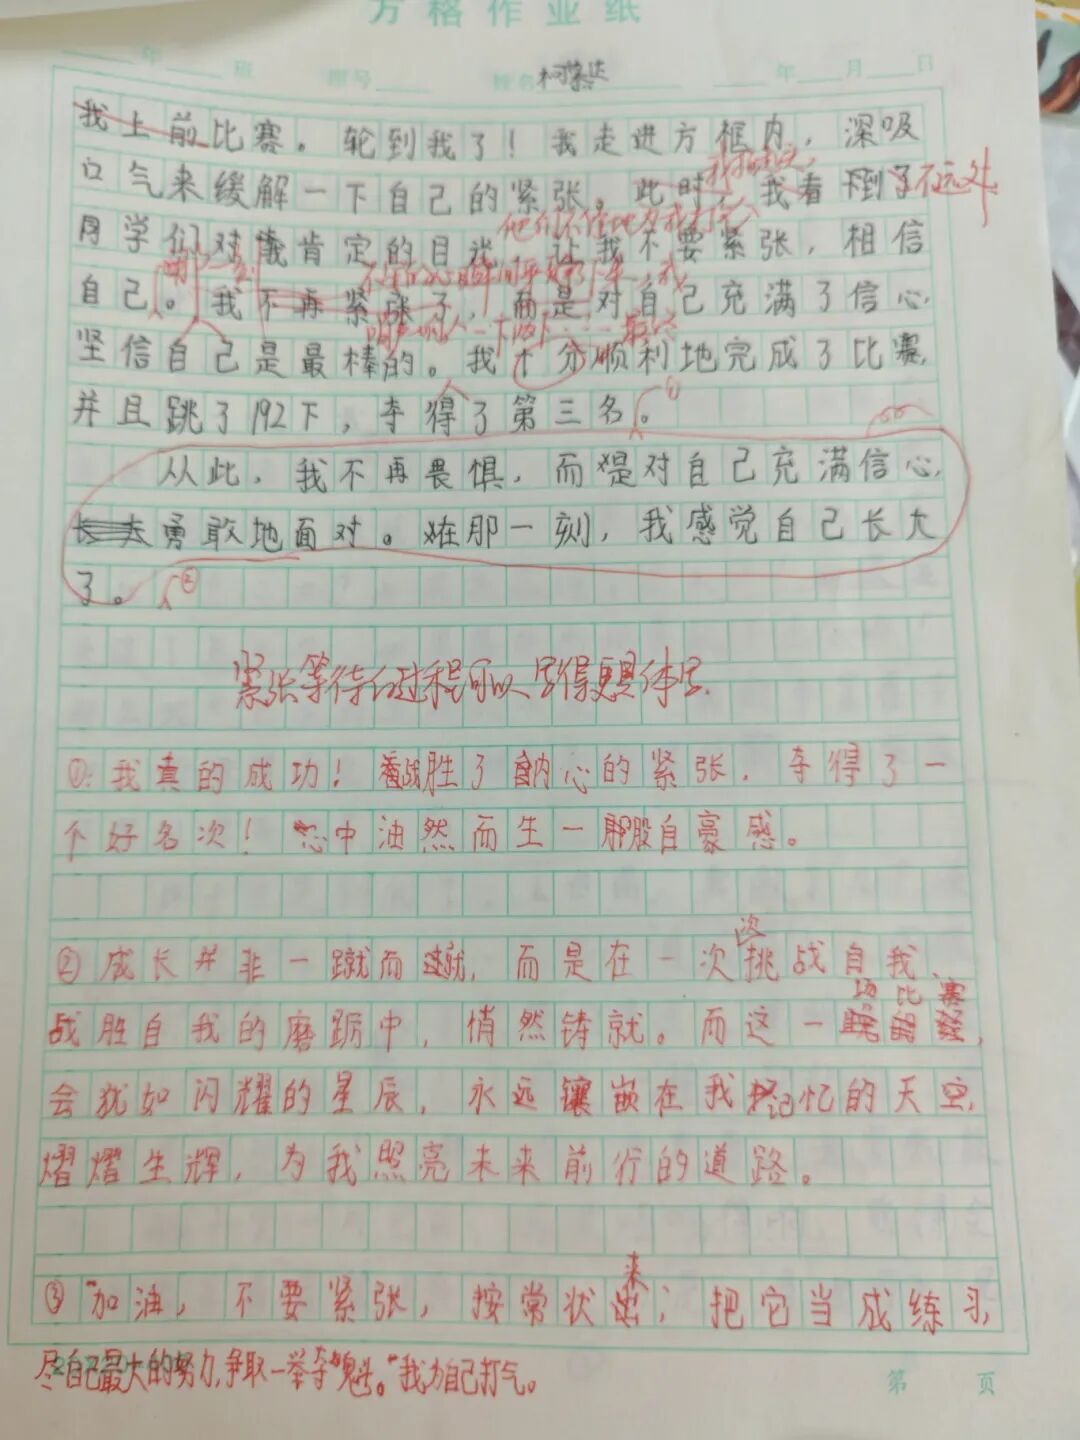 方格作业纸
年 班 座号 姓名 年 月 日
我上前比赛。轮到我了！我走进方框内，深吸
口气来缓解一下自己的紧张。此时，我看到了不远处
同学们对我肯定的目光，让我不要紧张，相信
他们不住地为我
自己。我不再紧张了，而是对自己充满了信心，
那一刻
坚信自己是最棒的。我十分顺利地完成了比赛，
一下 两下……最终
并且跳了192下，夺得了第三名。①
从此，我不再畏惧，而是对自己充满信心，
长大勇敢地面对。在那一刻，我感觉自己长大
了。②
紧张等待的过程可以写得更具体些
①：我真的成功！战胜了内心的紧张，夺得了一
个好名次！心中油然而生一股自豪感。
②成长并非一蹴而就，而是在一次次挑战自我、
战胜自我的磨砺中，悄然铸就。而这一场比赛，
会犹如闪耀的星辰，永远镶嵌在我记忆的天空，
熠熠生辉，为我照亮未来前行的道路。
③"加油，不要紧张，按常状来；把它当成练习，
尽自己最大的努力，争取一举夺魁。"我为自己打气。
第 页